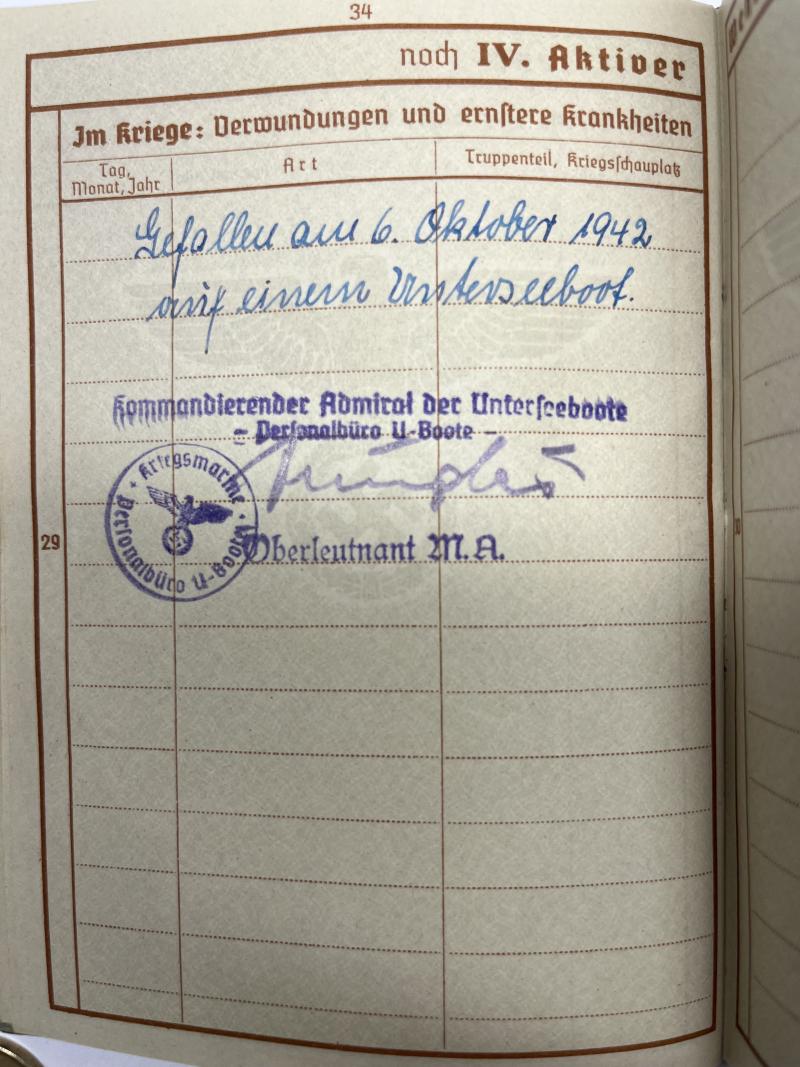 34
noch IV. Aktiver
Im Kriege: Verwundungen und ernstere Krankheiten
Tag, Monat, Jahr
Art
Truppenteil, Kriegsschauplatz
Gefallen am 6. Oktober 1942
auf einem Unterseeboot.
Kommandierender Admiral der Unterseeboote
– Personalbüro U-Boote –
Kriegsmarine
Personalbüro U-Boote
Oberleutnant M.A.
29